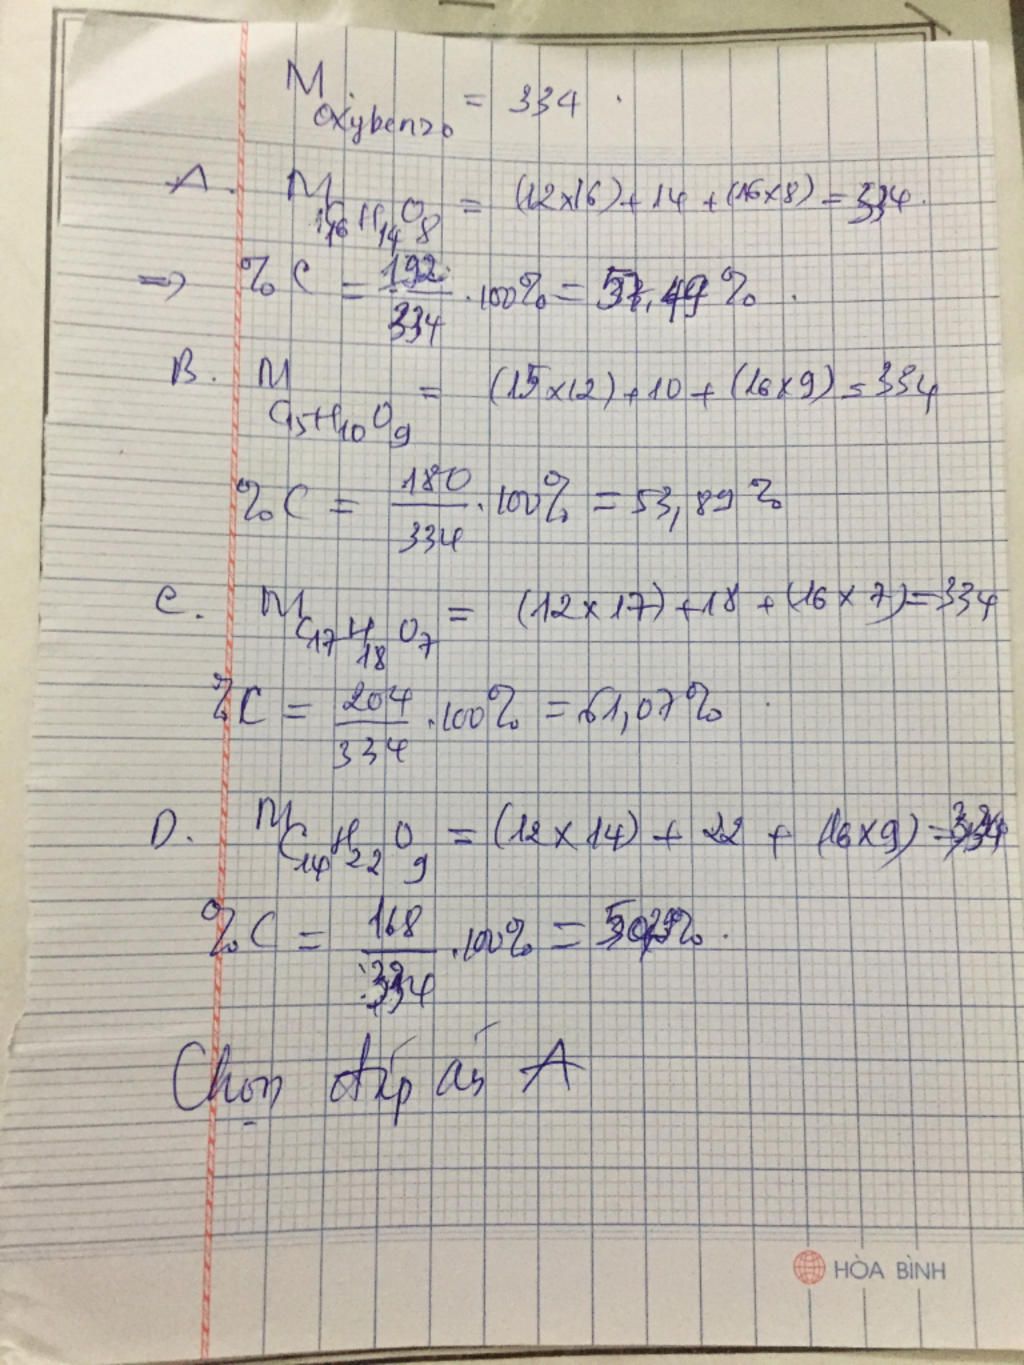 M oxybenzo = 334.
A. M C16H14O8 = (12x16) + 14 + (16x8) = 334.
=> %C = 192/334 . 100% = 57,49%.
B. M C15H10O9 = (15x12) + 10 + (16x9) = 334
%C = 180/334 . 100% = 53,89%
C. M C17H18O7 = (12x17) + 18 + (16x7) = 334
%C = 204/334 . 100% = 61,07%
D. M C14H22O9 = (12x14) + 22 + (16x9) = 334
%C = 168/334 . 100% =
Chọn đáp án A
HÒA BÌNH